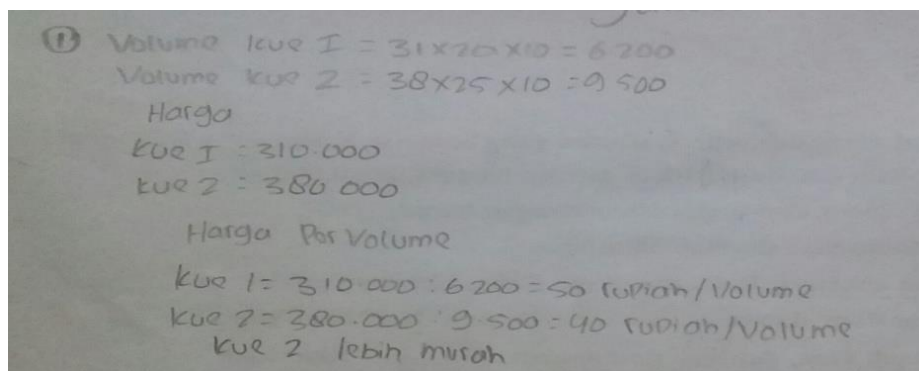 ① Volume kue I = 31x20x10 = 6200
Volume kue 2 = 38x25x10 = 9500
Harga
kue I = 310.000
kue 2 = 380 000
Harga Per Volume
kue 1 = 310 000 : 6 200 = 50 rupiah/Volume
kue 2 = 380.000 : 9.500 = 40 rupiah/Volume
kue 2 lebih murah